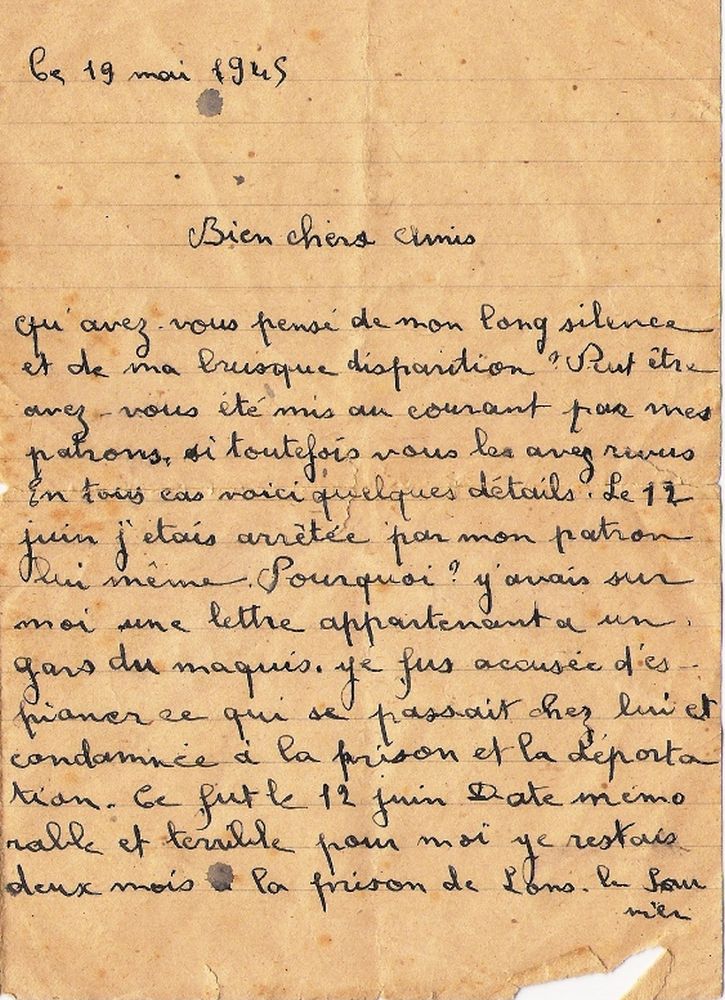 Ce 19 mai 1945
Bien chers Amis
qu'avez-vous pensé de mon long silence
et de ma brusque disparition ? Peut être
avez-vous été mis au courant par mes
patrons, si toutefois vous les avez revus
En tous cas voici quelques détails. Le 12
juin j'étais arrêtée par mon patron
lui même. Pourquoi ? j'avais sur
moi une lettre appartenant a un
gars du maquis. je fus accusée d'es-
pioner ce qui se passait chez lui et
condamnée à la prison et la déporta
tion. Ce fut le 12 juin Date mémo
rable et terrible pour moi je restais
deux mois à la prison de Lons. le Sau
nier